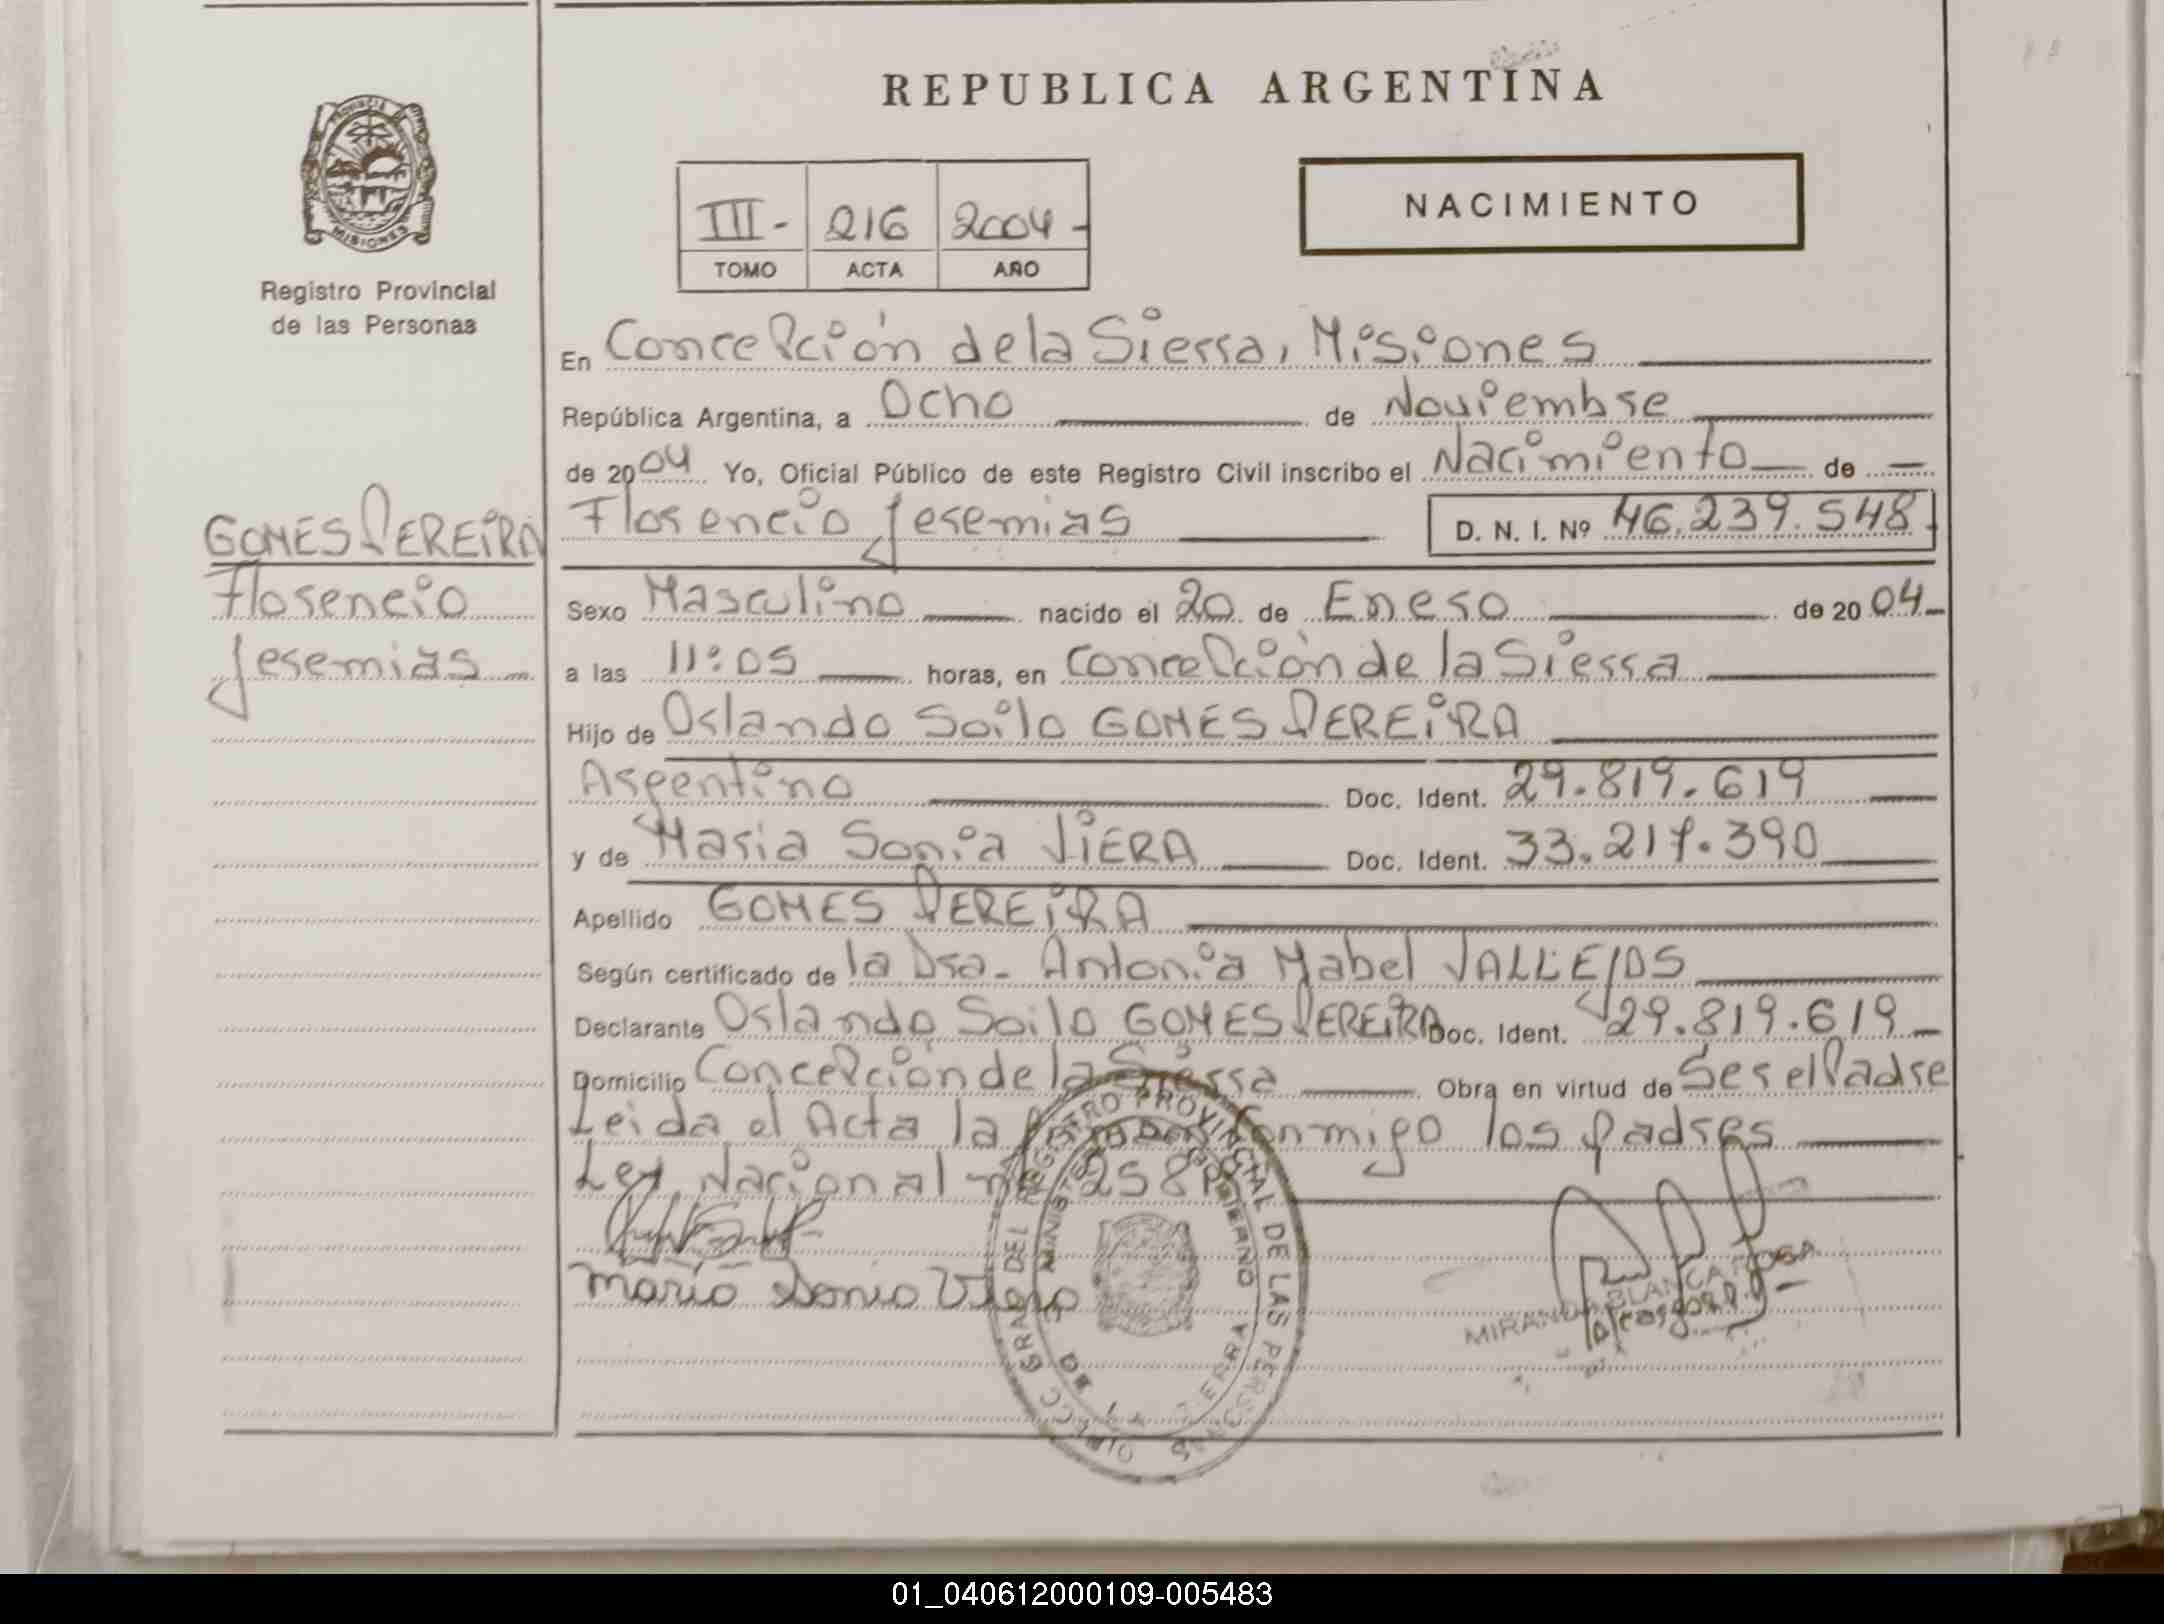 REPUBLICA ARGENTINA
PROVINCIA
MISIONES
Registro Provincial
de las Personas
III- 216 2004-
TOMO ACTA AÑO
NACIMIENTO
En Concepción de la Sierra, Misiones
República Argentina, a Ocho de Noviembre
de 2004 Yo, Oficial Público de este Registro Civil inscribo el Nacimiento de
Florencio Jeremias D. N. I. Nº 46.239.548
GOMES PEREIRA
Florencio
Jeremias
Sexo Masculino nacido el 20 de Enero de 2004
a las 11:05 horas, en Concepción de la Sierra
Hijo de Orlando Soilo GOMES PEREIRA
Argentino Doc. Ident. 29.819.619
y de Maria Sonia VIERA Doc. Ident. 33.217.390
Apellido GOMES PEREIRA
Según certificado de la Dra. Antonia Mabel VALLEJOS
Declarante Orlando Soilo GOMES PEREIRA Doc. Ident. 29.819.619
Domicilio Concepción de la Sierra Obra en virtud de Ser el Padre
Leida el Acta la conmigo los padres
Ley Nacional
Maria Sonia Viera
MIRANDA BLANCA ROSA
DIRECC GRAL DEL REGISTRO PROVINCIAL DE LAS PERSONAS
01_040612000109-005483